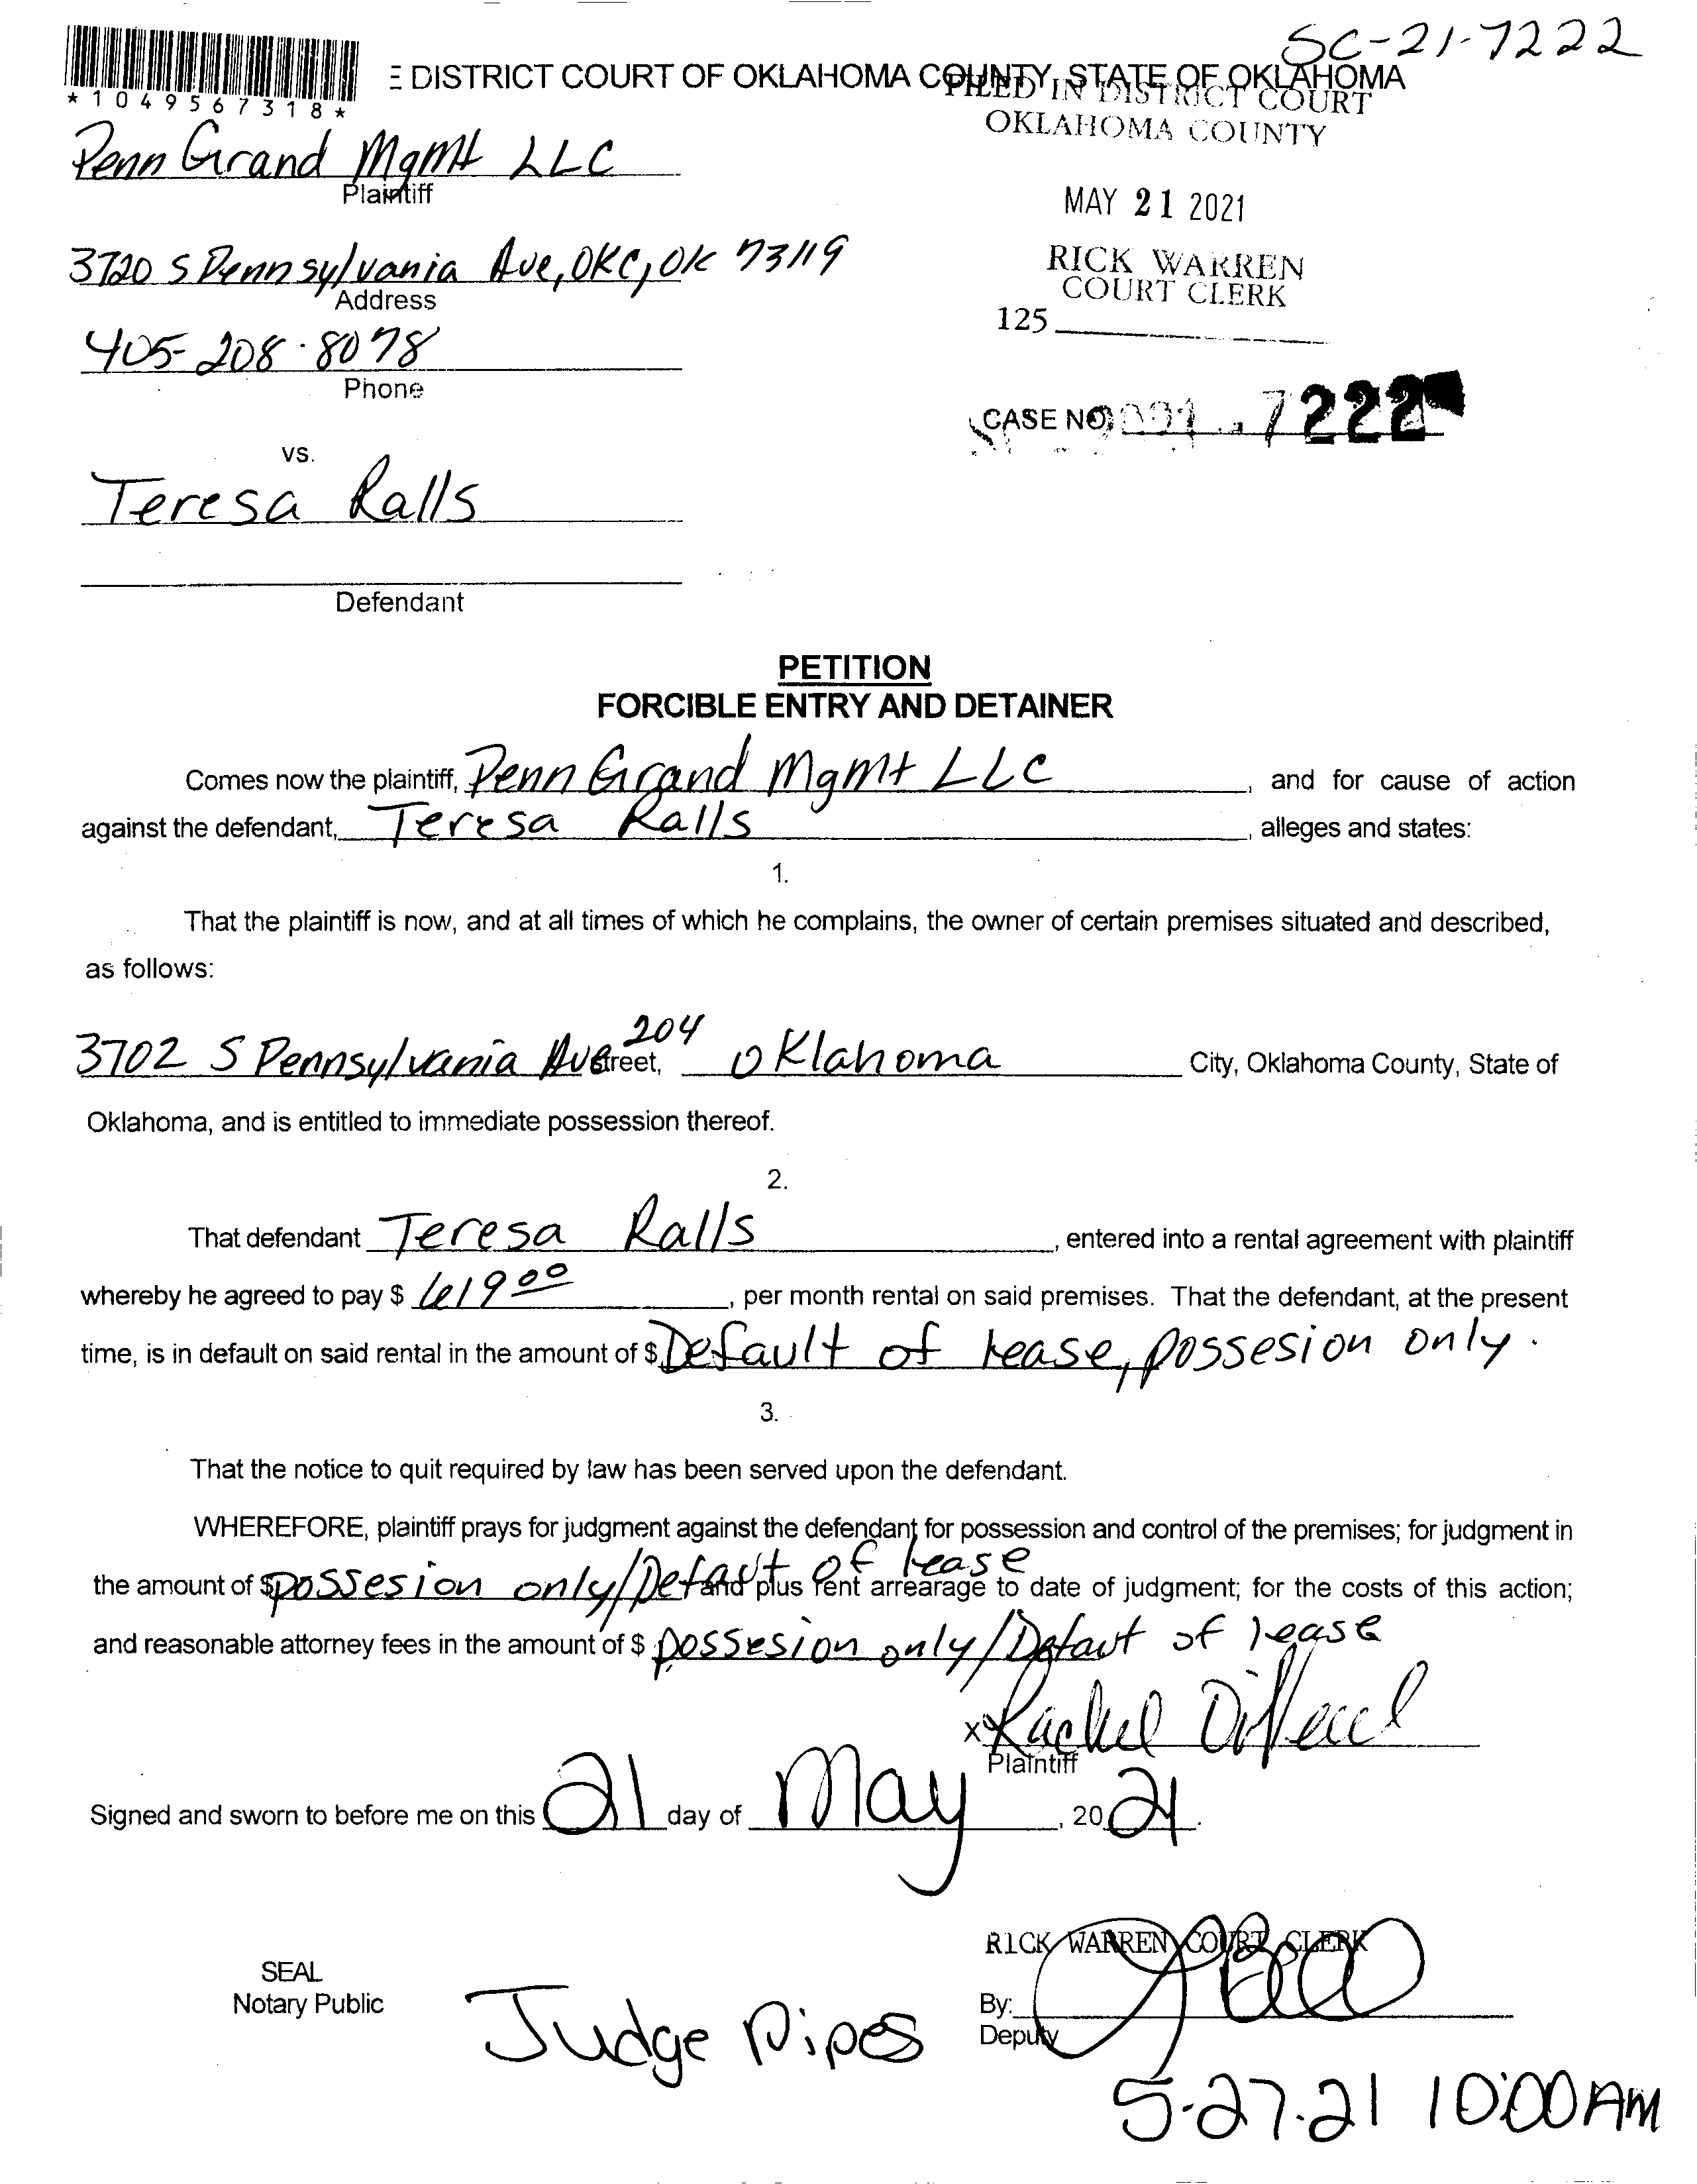 SC-21-7222
E DISTRICT COURT OF OKLAHOMA COUNTY, STATE OF OKLAHOMA
*1049567318*
FILED IN DISTRICT COURT
OKLAHOMA COUNTY
Penn Grand Mgmt LLC
Plaintiff
MAY 21 2021
3720 S Pennsylvania Ave, OKC, OK 73119
Address
RICK WARREN
COURT CLERK
125
405-208-8078
Phone
CASE NO. 7222
vs.
Teresa Ralls
Defendant
PETITION
FORCIBLE ENTRY AND DETAINER
Comes now the plaintiff, Penn Grand Mgmt LLC, and for cause of action
against the defendant, Teresa Ralls, alleges and states:
1.
That the plaintiff is now, and at all times of which he complains, the owner of certain premises situated and described,
as follows:
3702 S Pennsylvania Ave 204 Street, Oklahoma City, Oklahoma County, State of
Oklahoma, and is entitled to immediate possession thereof.
2.
That defendant Teresa Ralls, entered into a rental agreement with plaintiff
whereby he agreed to pay $ 619 00, per month rental on said premises. That the defendant, at the present
time, is in default on said rental in the amount of $ Default of lease, possesion only.
3.
That the notice to quit required by law has been served upon the defendant.
WHEREFORE, plaintiff prays for judgment against the defendant for possession and control of the premises; for judgment in
the amount of $ possesion only/Defaut of lease and plus rent arrearage to date of judgment; for the costs of this action;
and reasonable attorney fees in the amount of $ possesion only/Defaut of lease
x Rachel
Plaintiff
Signed and sworn to before me on this 21 day of May, 2021.
RICK WARREN COURT CLERK
SEAL
Notary Public
By:
Deputy
Judge Pipes
5-27-21 10:00 AM